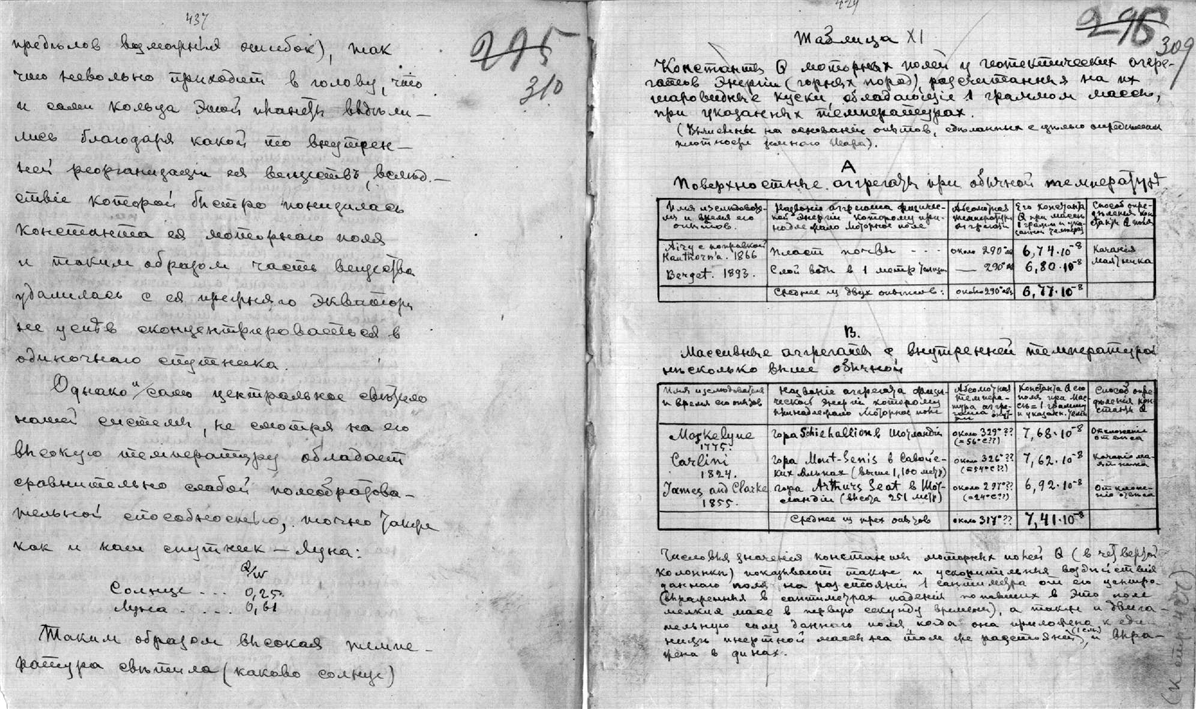 437
предѣловъ возможныя ошибок), так
что невольно приходит в голову, что
и сами кольца этой планеты выдѣли-
лись благодаря какой то внутрен-
ней реорганизации ея веществъ, вслѣд-
ствіе которой быстро понизилась
константа ея моторнаго поля
и таким образом часть вещества
удалилась с ея прежняго экватора
не успѣв сконцентрироваться в
одиночнаго спутника.
Однако и само центральное свѣтило
нашей системы, не смотря на его
высокую температуру обладает
сравнительно слабой полеобразова-
тельной способностью, точно также
как и наш спутник — Луна:
Q/w
Солнце . . . 0,25.
Луна . . . 0,61
Таким образом высокая темпе-
ратура свѣтила (каково солнце)
295
310
429
296
309
Таблица XI
Константы Q моторных полей у геотектических агре-
гатов энергіи (горных пород), разсчитанныя на их
шаровидные куски, обладающіе 1 граммом массы,
при указанных температурах.
(на основаніи опытов, сдѣланных с цѣлью опредѣленія
плотности земного шара).
А
Поверхностные аггрегаты при обычной температурѣ
Имя изслѣдовате-
ля и время его
опытов.
Названіе аггрегата физичес-
кой энергіи которому при-
надлежало моторное поле
Абсолютная
температура
аггрегата
Его константа
Q при массѣ
1 грамм и ука-
занной темпер.
Способ опре-
дѣленія кон-
станты Q поля
Airy с поправкой
Haughton'а. 1866
Пласт почвы - - -
около 290°
6,74·10⁻⁸
Качанія
маятника
Berget. 1893.
Слой воды в 1 метр толщин.
— 290°
6,80·10⁻⁸
Среднее из двух опытов:
около 290°
6,77·10⁻⁸
В.
Массивные аггрегаты с внутренней температурой
нѣсколько выше обычной
Имя изслѣдователя
и время его опытов
Названіе аггрегата физи-
ческой энергіи которому
принадлежало моторное поле
Абсолютная
темпера-
тура аггре-
гата
Константа Q его
поля при мас-
сѣ = 1 грамму
и указан. темп.
Способ опре-
дѣленія кон-
станты Q
Maskelyne
1775.
гора Schiehallion в Шотландіи
около 329°??
(=56°C??)
7,68·10⁻⁸
Отклоненіе
отвѣса
Carlini
1824.
гора Mont-Senis в Савой-
ских альпах (выше 1,100 метр)
около 326°??
(=54°C??)
7,62·10⁻⁸
Качаніе ма-
ятника
James and Clarke
1855.
гора Arthurs Seat в Шот-
ландіи (высота 251 метр)
около 297°??
(=24°C?)
6,92·10⁻⁸
отклоне-
ніе отвѣса
Среднее из трех опытов
около 317°??
7,41·10⁻⁸
Числовыя значенія константы моторных полей Q (в четвертой
колоннкѣ) показывают также и ускорительныя воздѣйствія
даннаго поля на разстояніи 1 сантиметра от его центра
(выраженныя в сантиметрах паденія попавших в это поле
мелких масс в первую секунду времени), а также и двига-
тельную силу даннаго поля когда она приложена к еди-
ницѣ инертной массы на том же разстояніи (1 см) и выра-
жена в динах.
(к стр 424)